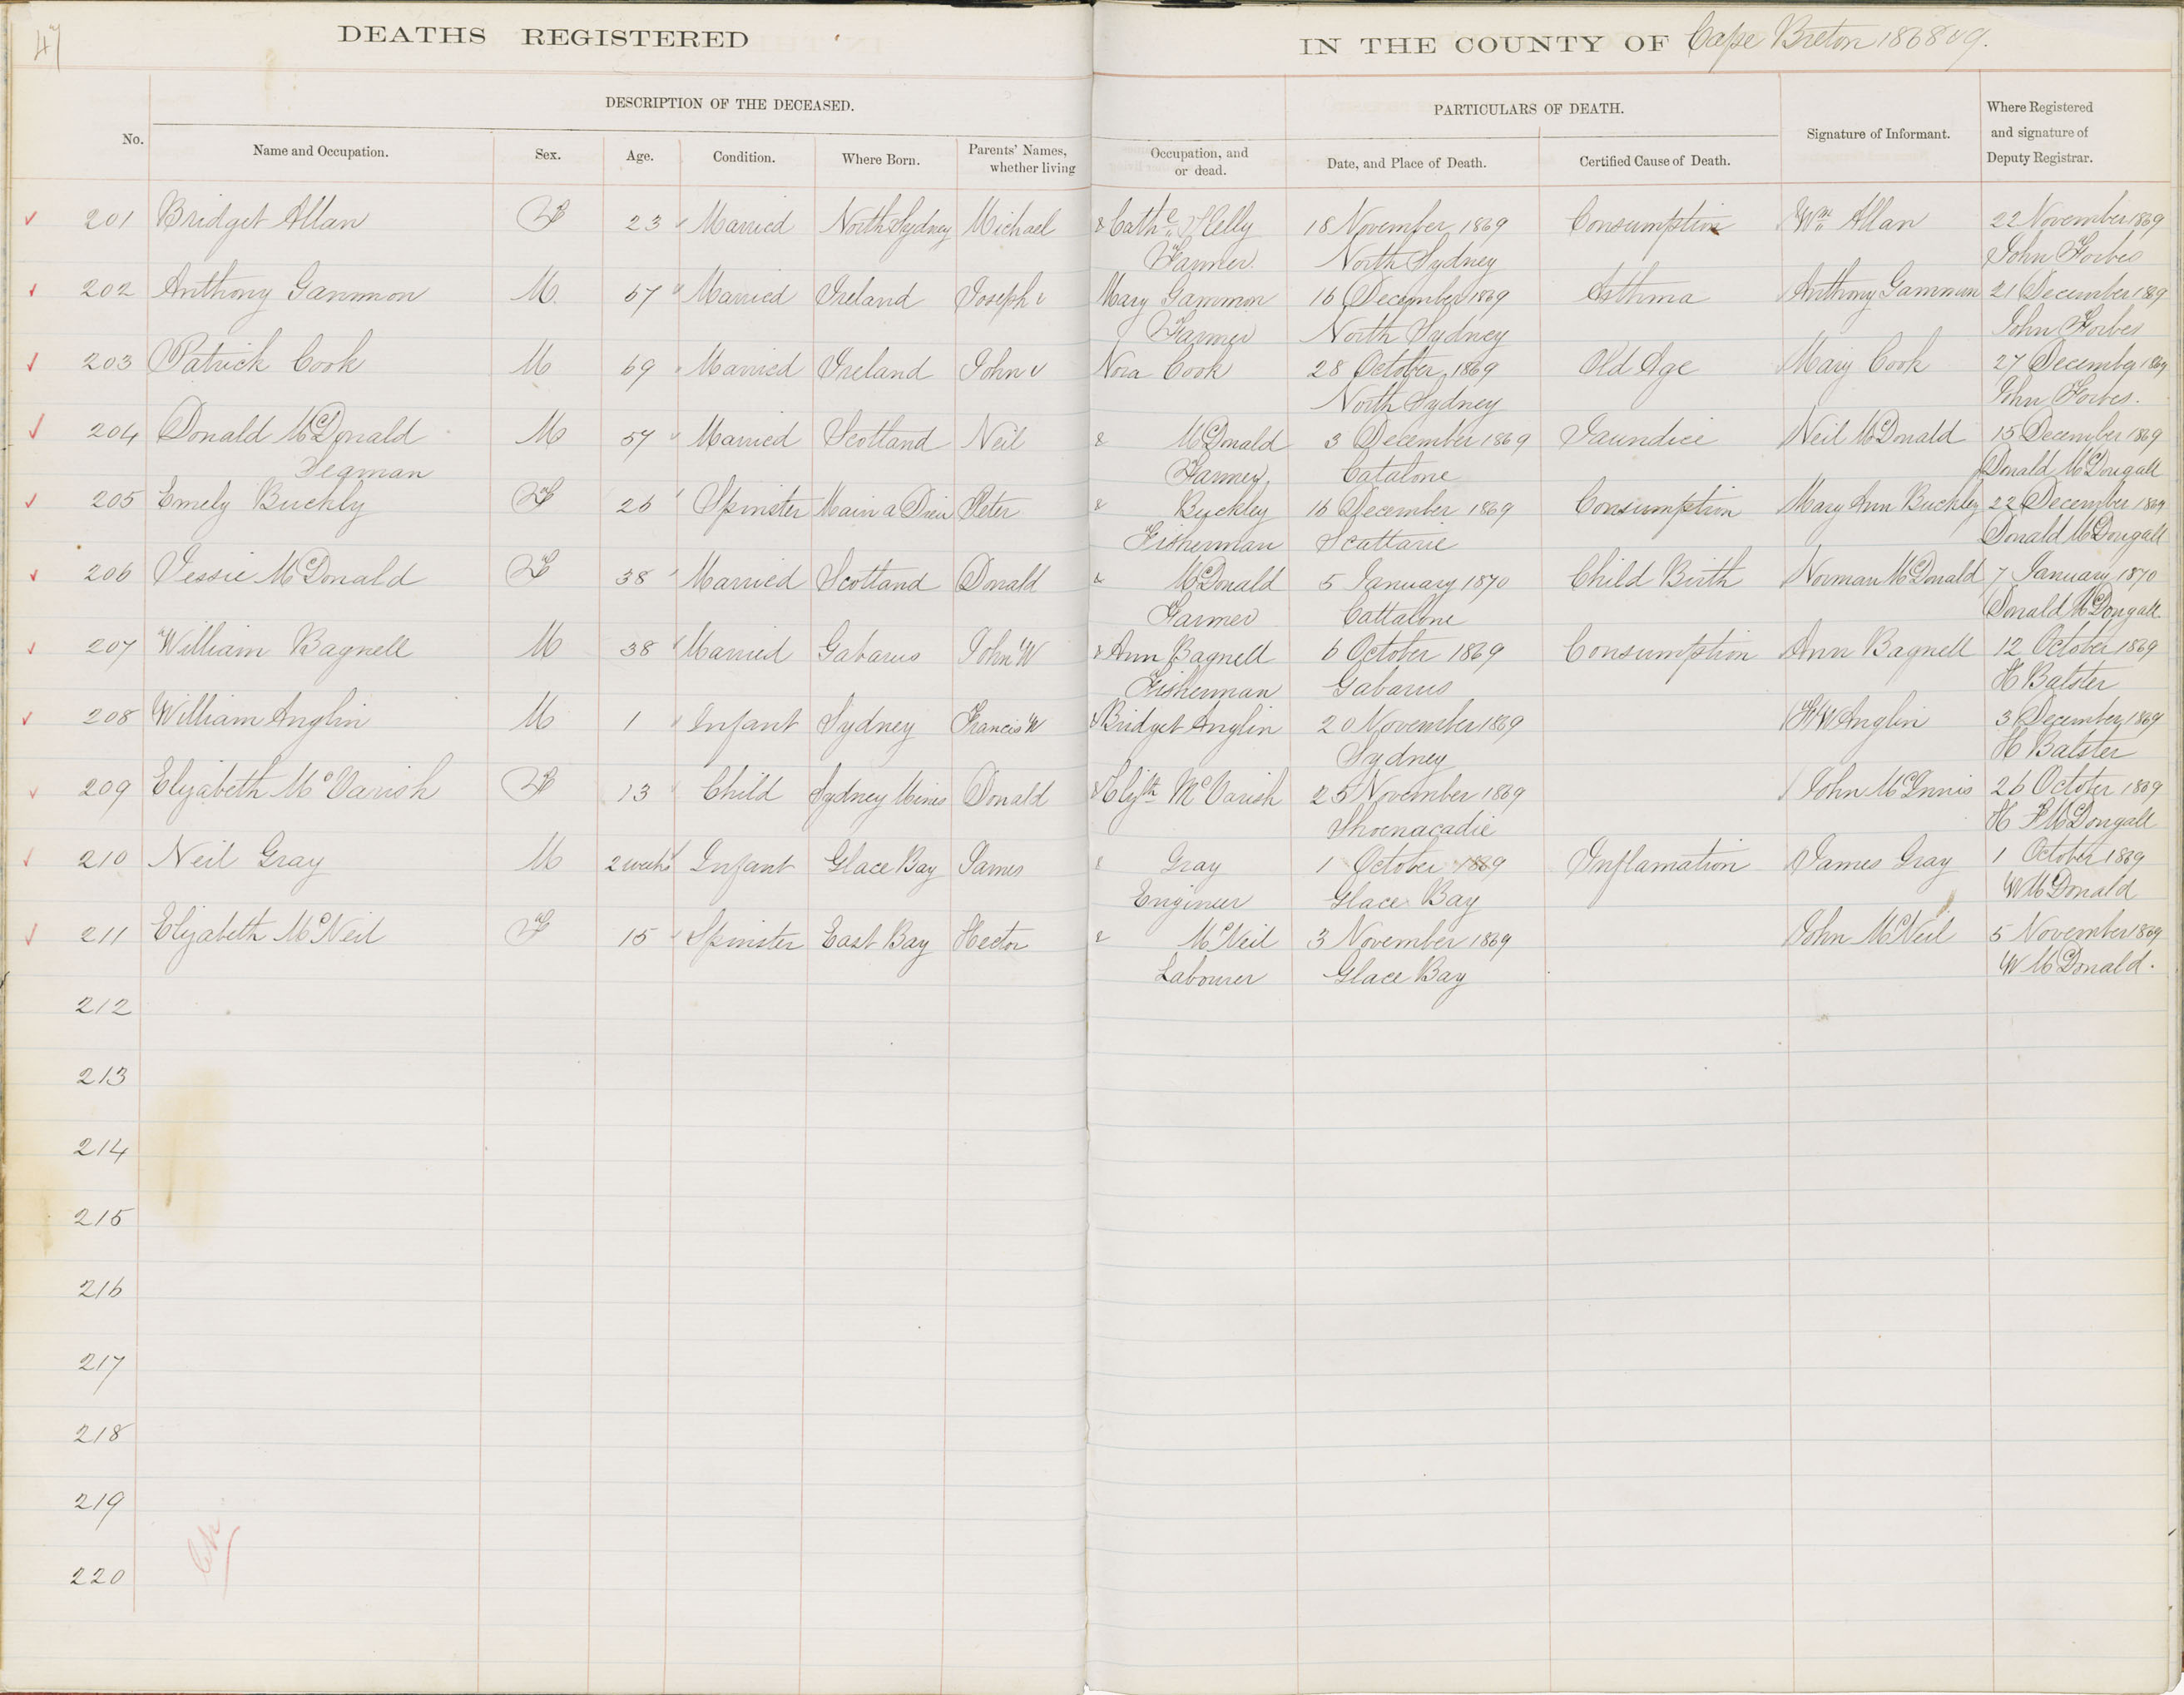 47
DEATHS REGISTERED IN THE COUNTY OF Cape Breton 1868 & 9.
DESCRIPTION OF THE DECEASED. PARTICULARS OF DEATH.
No. Name and Occupation. Sex. Age. Condition. Where Born. Parents' Names, whether living Occupation, and or dead. Date, and Place of Death. Certified Cause of Death. Signature of Informant. Where Registered and signature of Deputy Registrar.
201 Bridget Allan F 23 Married North Sydney Michael & Cathe Kelly 18 November 1869 Consumption Wm Allan 22 November 1869
Farmer. North Sydney John Forbes
202 Anthony Gammon M 67 Married Ireland Joseph & Mary Gammon 16 December 1869 Asthma Anthony Gammon 21 December 1869
Farmer North Sydney John Forbes
203 Patrick Cook M 69 Married Ireland John & Nora Cook 28 October 1869 Old Age Mary Cook 27 December 1869
North Sydney John Forbes.
204 Donald McDonald M 57 Married Scotland Neil & McDonald 3 December 1869 Jaundice Neil McDonald 15 December 1869
Farmer, Catalone Donald McDougall
205 Emely Buckly F 26 Spinster Main a Dieu Peter & Buckley 16 December 1869 Consumption Mary Ann Buckley 22 December 1869
Fisherman Scattarie Donald McDougall
206 Jessie McDonald F 38 Married Scotland Donald & McDonald 5 January 1870 Child Birth Norman McDonald 7 January 1870
Farmer Cattalone Donald McDougall
207 William Bagnell M 38 Married Gabarus John W & Ann Bagnell 6 October 1869 Consumption Ann Bagnell 12 October 1869
Fisherman Gabarus H Batster
208 William Anglin M 1 Infant Sydney Francis W & Bridget Anglin 20 November 1869 F W Anglin 3 December 1869
Sydney H Batster
209 Elizabeth McVarish F 13 Child Sydney Mines Donald & Elizth McVarish 25 November 1869 John McInnis 26 October 1869
Shoenacadie H F McDougall
210 Neil Gray M 2 weeks Infant Glace Bay James & Gray 1 October 1869 Inflamation James Gray 1 October 1869
Engineer Glace Bay W McDonald
211 Elizabeth McNeil F 15 Spinster East Bay Hector & McNeil 3 November 1869 John McNeil 5 November 1869
Labourer Glace Bay W McDonald.
212
213
214
215
216
217
218
219
220